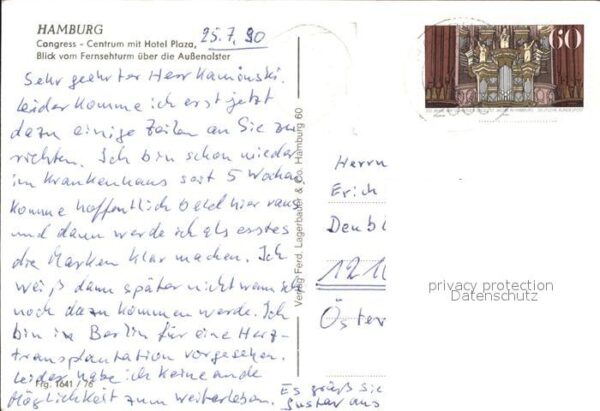 HAMBURG
Congress - Centrum mit Hotel Plaza,
Blick vom Fernsehturm über die Außenalster
25.7.90
60
Sehr geehrter Herr Kaminski.
leider komme ich erst jetzt
dazu einige Zeilen an Sie zu
richten. Ich bin schon wieder
im Krankenhaus seit 5 Wochen
komme hoffentlich bald hier raus
und dann werde ich als erstes
die Marken klar machen. Ich
weiß dann später nicht wann ich
noch dazu kommen werde. Ich
bin in Berlin für eine Herz-
transplantation vorgesehen.
leider habe ich keine ande
Möglichkeit zum weiterleben.
Es grüßt Sie
Gustav aus
Frg. 1641 / 76
Verlag Ferd. Lagerbauer & Co. Hamburg 60
Herrn
Erich
Öster
privacy protection
Datenschutz